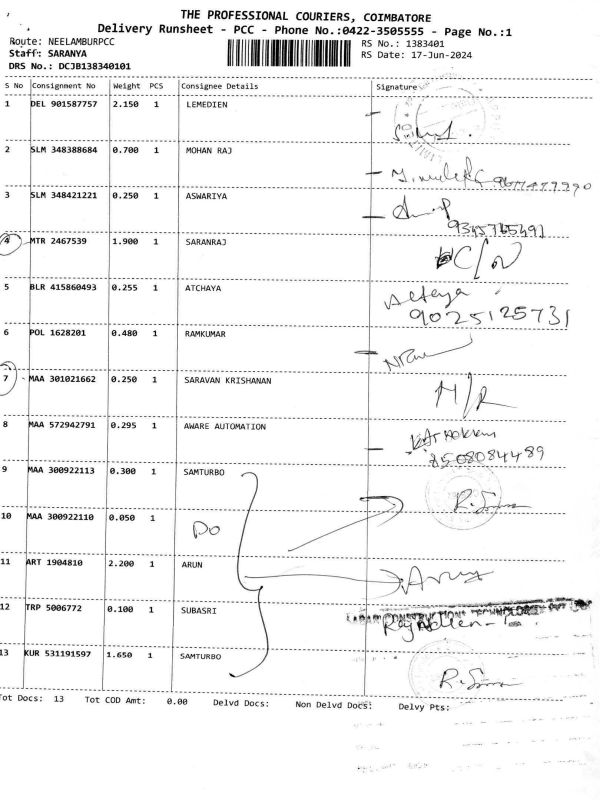 THE PROFESSIONAL COURIERS, COIMBATORE
Delivery Runsheet - PCC - Phone No.:0422-3505555 - Page No.:1
Route: NEELAMBURPCC RS No.: 1383401
Staff: SARANYA RS Date: 17-Jun-2024
DRS No.: DCJB138340101
S No Consignment No Weight PCS Consignee Details Signature
1 DEL 901587757 2.150 1 LEMEDIEN
2 SLM 348388684 0.700 1 MOHAN RAJ
3 SLM 348421221 0.250 1 ASWARIYA
4 MTR 2467539 1.900 1 SARANRAJ C/N
5 BLR 415860493 0.255 1 ATCHAYA
9025125731
6 POL 1628201 0.480 1 RAMKUMAR
7 MAA 301021662 0.250 1 SARAVAN KRISHANAN
8 MAA 572942791 0.295 1 AWARE AUTOMATION
8508084489
9 MAA 300922113 0.300 1 SAMTURBO
10 MAA 300922110 0.050 1 Do
11 ART 1904810 2.200 1 ARUN
12 TRP 5006772 0.100 1 SUBASRI
13 KUR 531191597 1.650 1 SAMTURBO
Tot Docs: 13 Tot COD Amt: 0.00 Delvd Docs: Non Delvd Docs: Delvy Pts: